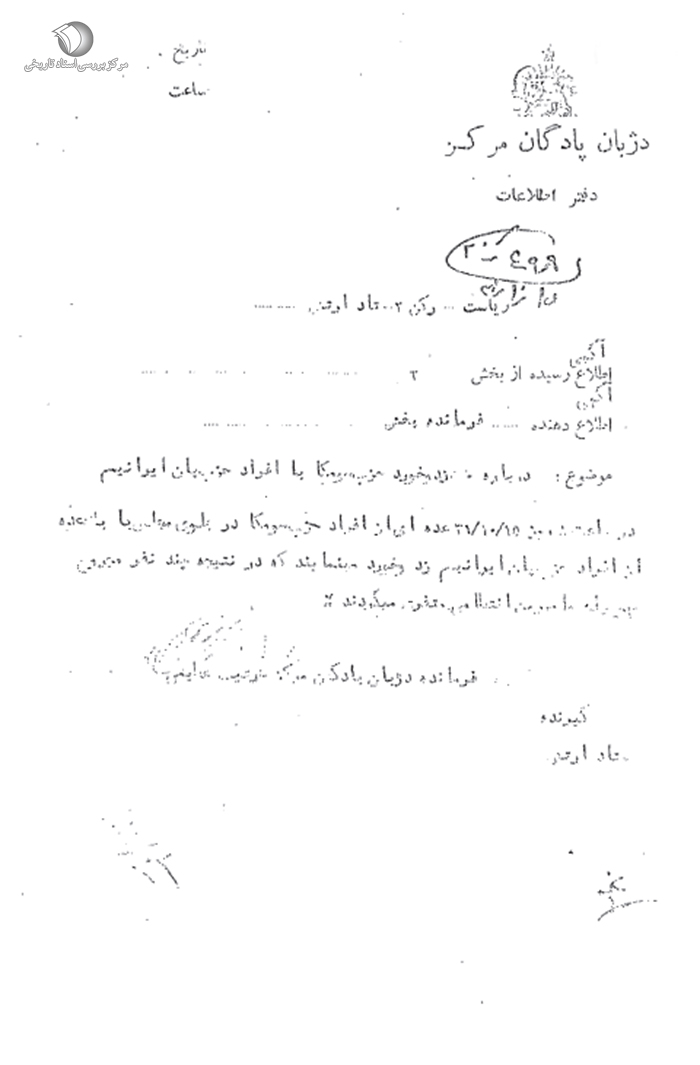 مرکز بررسی اسناد تاریخی
تاریخ
ساعت
دژبان پادگان مرکز
دفتر اطلاعات
ریاست رکن ۲ ستاد ارتش
آگهی
اطلاع رسیده از بخش ۳
آگهی
اطلاع دهنده فرمانده بخش
موضوع: درباره زد و خورد حزب سومکا با افراد حزب پان ایرانیسم
در ساعت روز ۳۱/۱۰/۱۵ عده ای از افراد حزب سومکا در جلوی مجلس با عده
از افراد حزب پان ایرانیسم زد و خورد مینمایند که در نتیجه چند نفر مجروح
مامورین انتظامی متفرق میگردند
فرمانده دژبان پادگان مرکز سرتیپ
گیرنده
ستاد ارتش